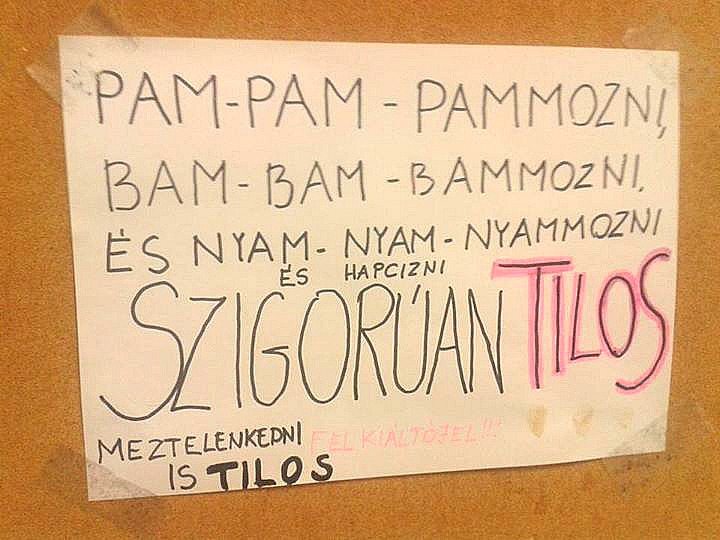 PAM-PAM-PAMMOZNI,
BAM-BAM-BAMMOZNI,
ÉS NYAM-NYAM-NYAMMOZNI
ÉS HAPCIZNI
SZIGORÚAN TILOS
MEZTELENKEDNI FELKIÁLTÓJEL!!!
IS TILOS